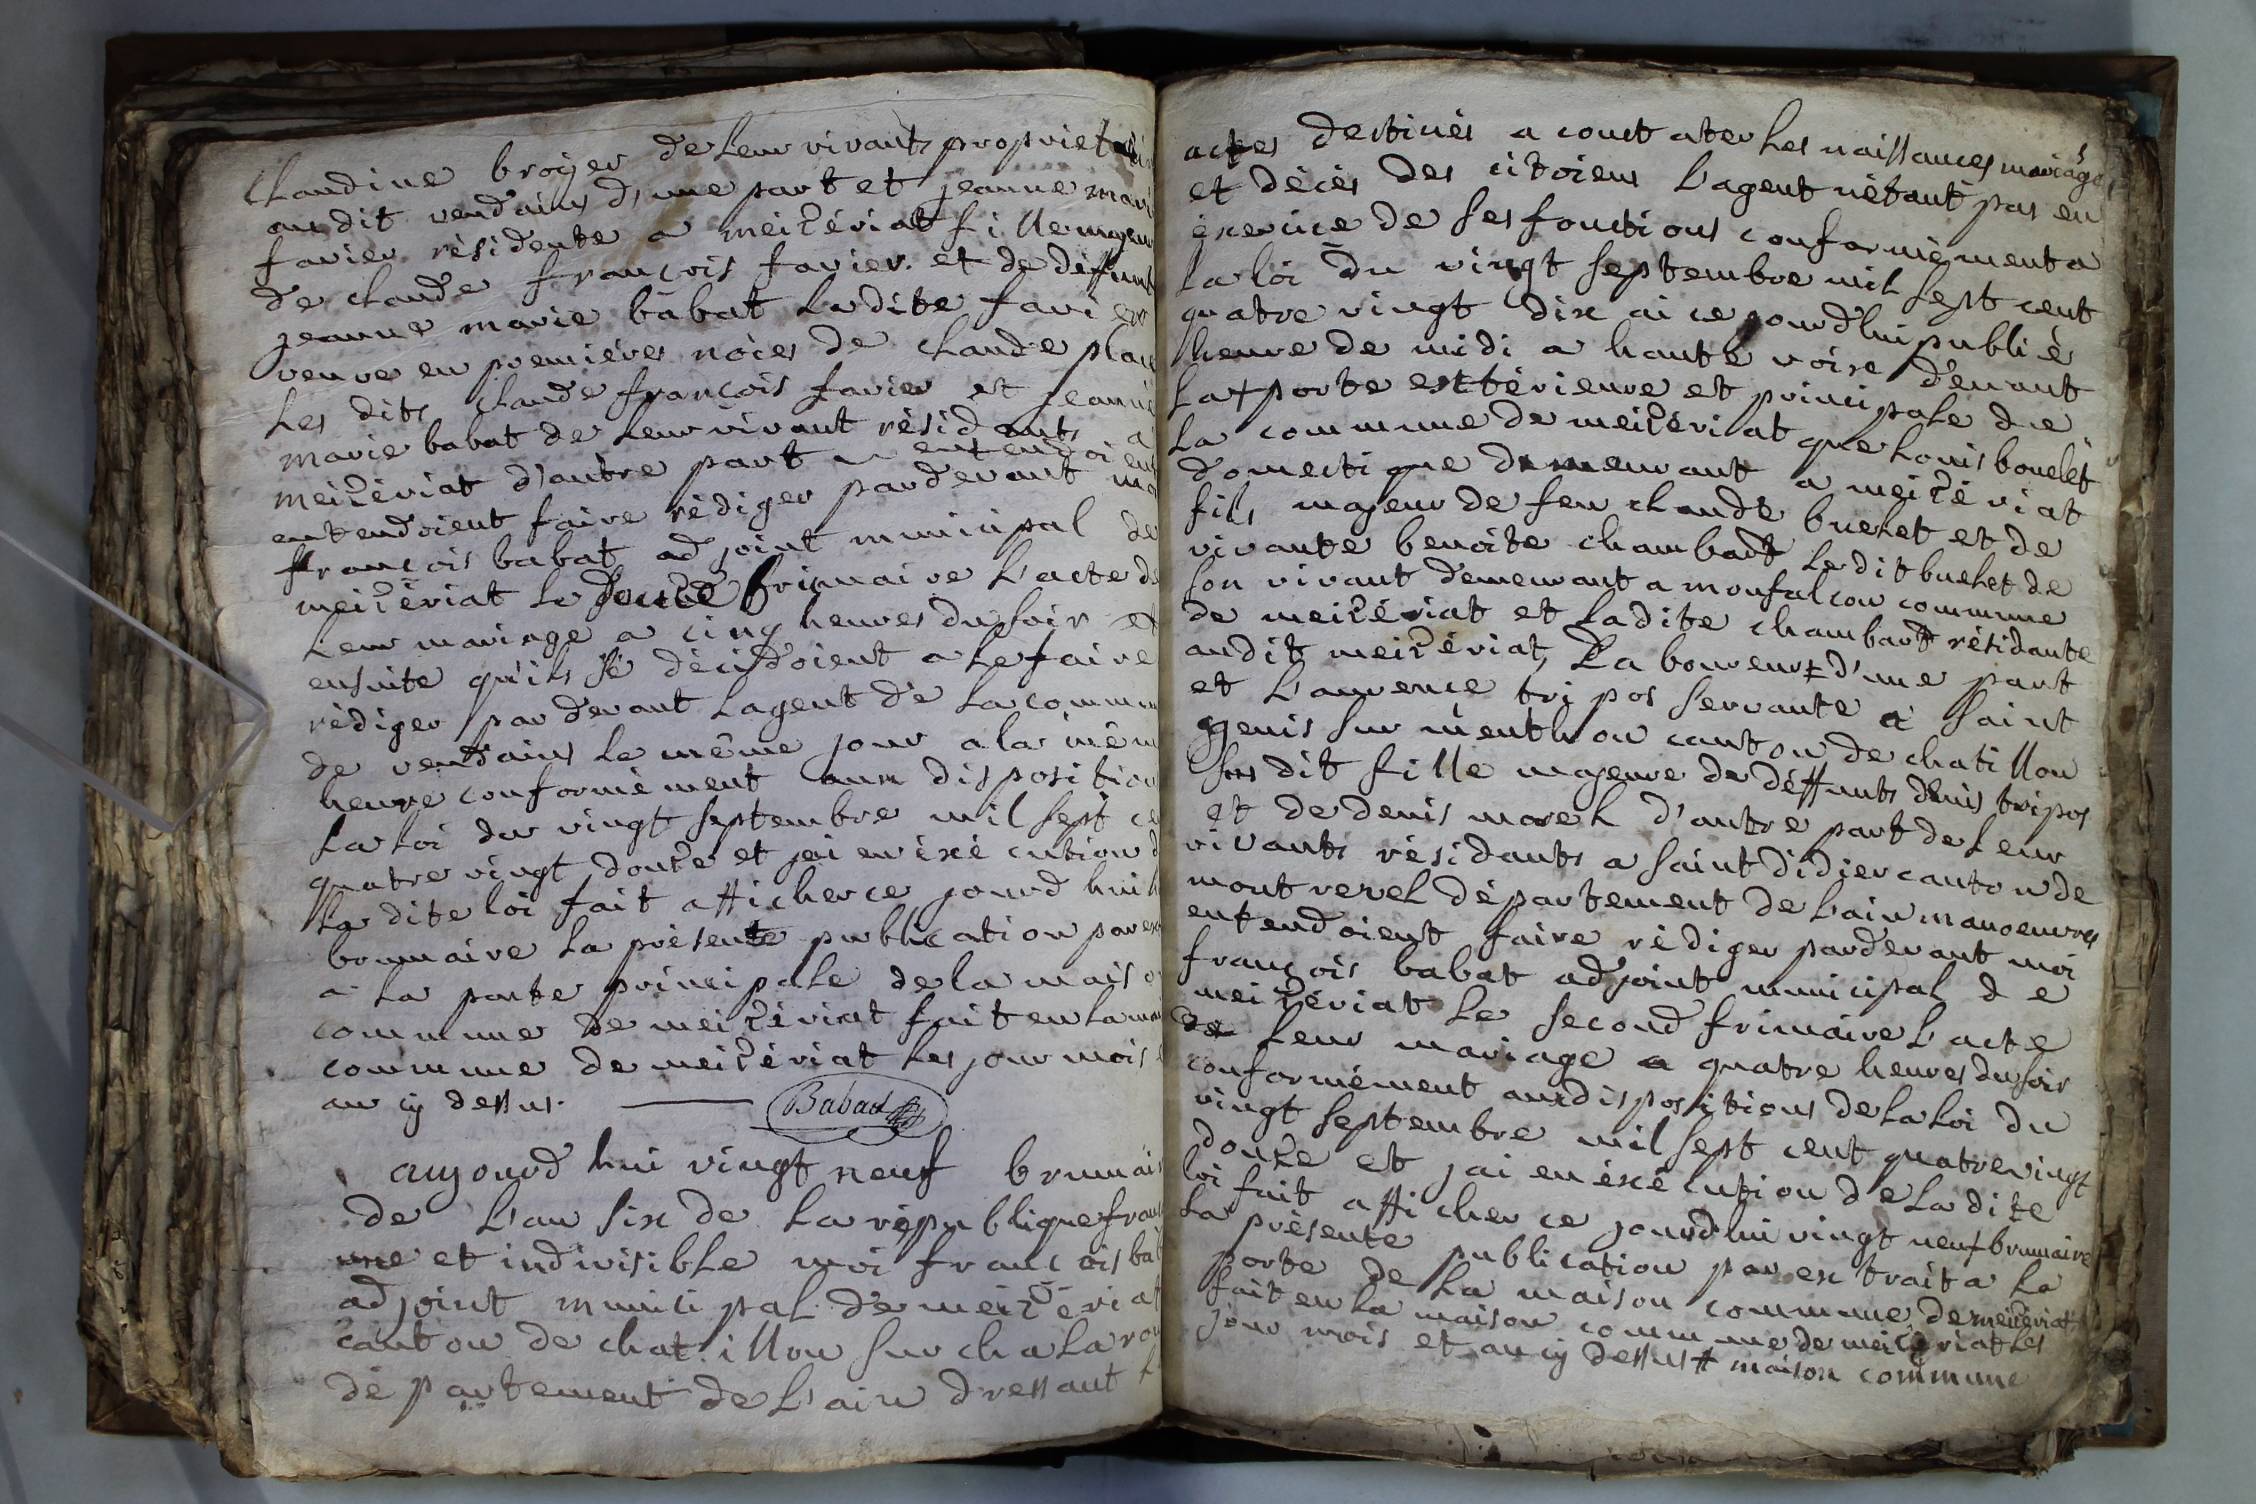 Claudine broyer de leur vivants propriet
au dit vendains d'une part et jeanne mari
favier résidente a meizériat fille majeur
de claude françois favier et de déffunt
jeanne marie babat ladite favier
veuve en premiéres nôces de claude
les dits claude françois favier et jeanne
marie babat de leur vivant résidants a
meizériat d'autre part entendoient
entendoient faire rédiger pardevant moi
françois babat adjoint municipal de
meizériat le douze frimaire l'acte de
leur mariage a cinq heures du soir et
ensuite qu'ils se décidoient a le faire
rédiger par devant lagent de la commun
de vendains le même jour a la mêm
heure conformément aux disposition
la loi du vingt septembre mil sept ce
quatre vingt douze et jai en éxécution d
la dite loi fait afficher ce jourd'hui
brumaire la présente publication par ex
a la porte principale de la maison
commune de meizériat fait en la mai
commune de meizériat les jour mois e
an cy dessus. Babad
aujourd'hui vingt neuf brumair
de l'an six de la république franc
une et indivisible moi françois bab
adjoint municipal de meizériat
canton de chatillon sur chalaron
département de l'ain dressant
actes destinés a constater les naissances mariages
et décès des citoiens l'agent nétant pas en
éxercice de ses fonctions conformément a
la loi du vingt septembre mil sept cent
quatre vingt dix ai ce jourd'hui publié
heure de midi a haute voix devant
la # porte extérieure et principale de
la commune de meizériat que louis bouelet
domestique demeurant a meizériat
fils majeur de feu claude buelet et de
vivante benoite chambard le dit buelet de
son vivant demeurant a monfalcon commune
de meizériat et ladite chambard résidante
audit meizériat laboureurs d'une part
et Laurence tripos servante a saint
genis sur menthon canton de chatillon
sus dit fille majeure de déffunts denis tripos
et de denis morel d'autre part de leur
vivants résidants a saint didier canton de
montrevel département de l'ain manoeuvres
entendoient faire rédiger pardevant moi
françois babat adjoint municipal de
meizériat le second frimaire l'acte
de leur mariage a quatre heures du soir
conformément aux dispositions de la loi du
vingt septembre mil sept cent quatrevingt
douze et jai en éxécution de la dite
loi fait afficher ce jourd'hui vingt neuf brumaire
la présente publication par extrait a la
porte de la maison commune de meizériat
fait en la maison commune de meizériat les
jour mois et an cy dessus # maison commune